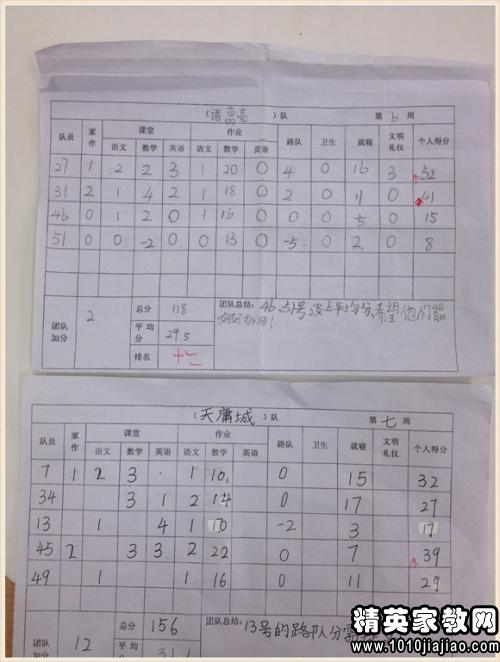 （诸葛亮）队 第6周
队员 家作 课堂 作业 路队 卫生 就寝 文明礼仪 个人得分
语文 数学 英语 语文 数学 英语
27 1 2 2 3 1 20 0 4 0 16 3 52
31 2 1 4 2 1 18 0 2 0 11 0 41
46 0 1 2 0 1 16 0 0 0 5 0 15
51 0 0 -2 0 0 13 0 -5 0 2 0 8
团队加分 2 总分 118 团队总结：46、51号没上平均分,希望他们能
平均分 29.5
排名 十二
（天庸城）队 第七周
队员 家作 课堂 作业 路队 卫生 就寝 文明礼仪 个人得分
语文 数学 英语 语文 数学 英语
7 1 2 3 · 1 10 0 15 32
34 3 1 2 14 0 17 27
13 1 4 1 10 -2 3 17
45 2 3 3 2 22 0 7 39
49 1 1 16 0 11 29
团队 12 总分 156 团队总结：13号的路队分需
平均 31.1
精英家教网
www.1010jiajiao.com